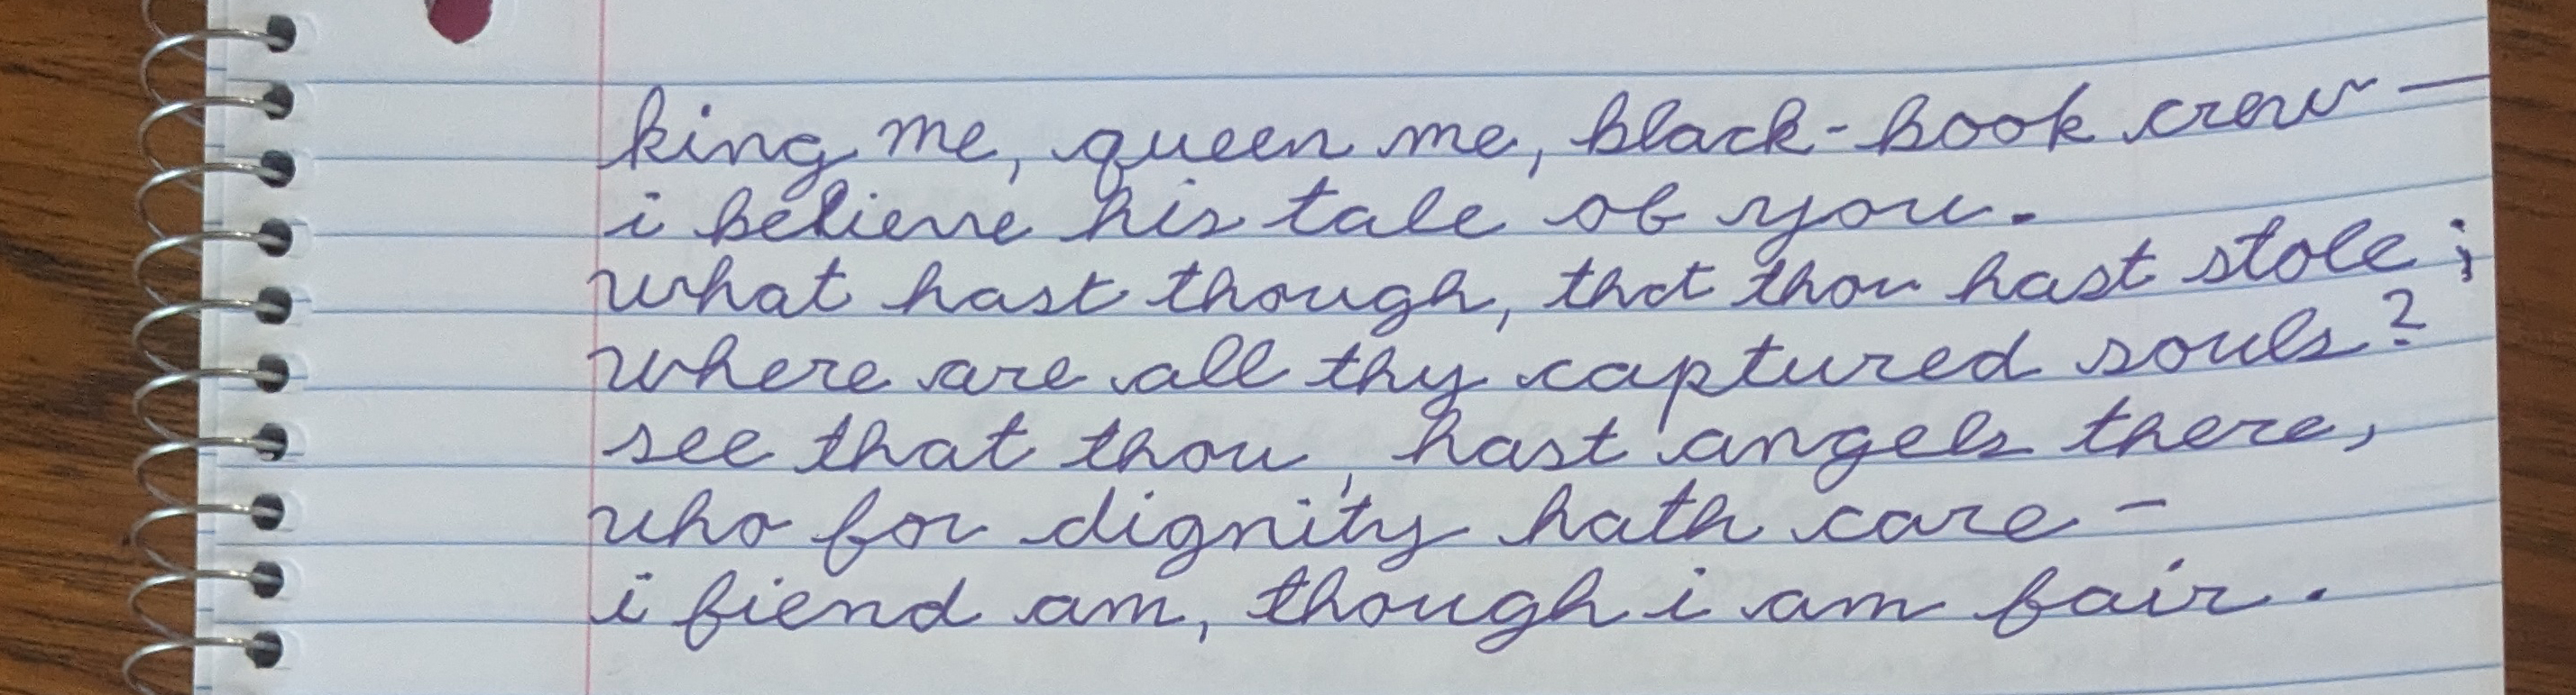 king me, queen me, black-book crew —
i believe his tale of you.
what hast though, that thou hast stole ;
where are all thy captured souls?
see that thou hast angels there,
who for dignity hath care -
i fiend am, though i am fair.